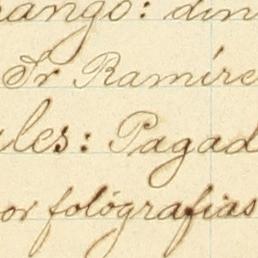 ango: din
Sr Ramíre
les: Pagad
or fotógrafias